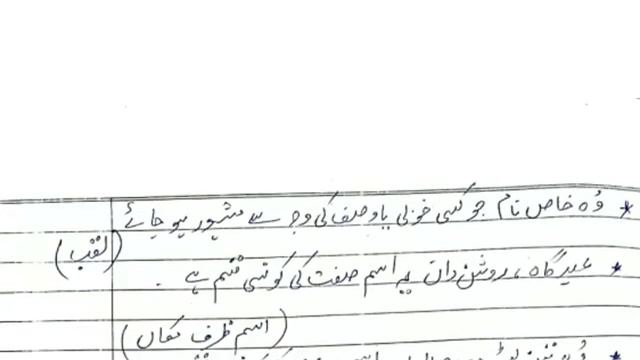 * وہ خاص نام جو کسی خوبی یا وصف کی وجہ سے مشہور ہو جائے
(لقب)
* عیدگاہ، روشن دان یہ اسم صفت کی کونسی قسم ہے۔
(اسم ظرف مکاں)